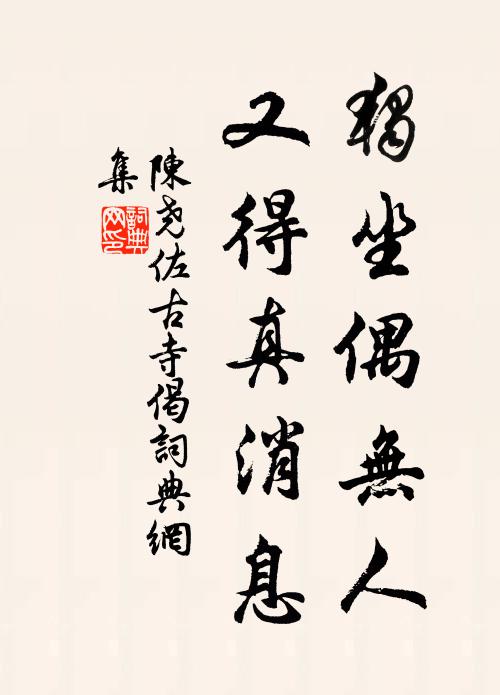 獨坐偶無人
又得真消息
陳堯佐古寺偈詞典網
集
詞典
网印